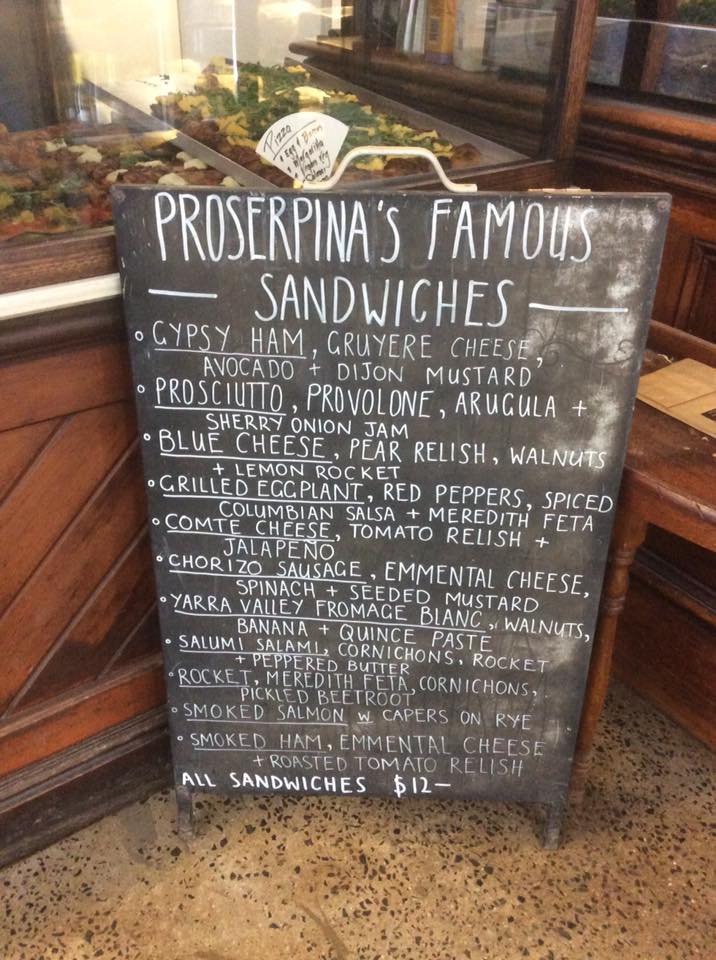 Pizza
• Egg &
PROSERPINA'S FAMOUS
— SANDWICHES —
° GYPSY HAM, GRUYERE CHEESE,
AVOCADO + DIJON MUSTARD
° PROSCIUTTO, PROVOLONE, ARUGULA +
SHERRY ONION JAM
° BLUE CHEESE, PEAR RELISH, WALNUTS
+ LEMON ROCKET
° GRILLED EGGPLANT, RED PEPPERS, SPICED
COLUMBIAN SALSA + MEREDITH FETA
° COMTE CHEESE, TOMATO RELISH +
JALAPEÑO
° CHORIZO SAUSAGE, EMMENTAL CHEESE,
SPINACH + SEEDED MUSTARD
° YARRA VALLEY FROMAGE BLANC, WALNUTS,
BANANA + QUINCE PASTE
° SALUMI SALAMI, CORNICHONS, ROCKET
+ PEPPERED BUTTER
° ROCKET, MEREDITH FETA, CORNICHONS,
PICKLED BEETROOT
° SMOKED SALMON W CAPERS ON RYE
° SMOKED HAM, EMMENTAL CHEESE
+ ROASTED TOMATO RELISH
ALL SANDWICHES $12—